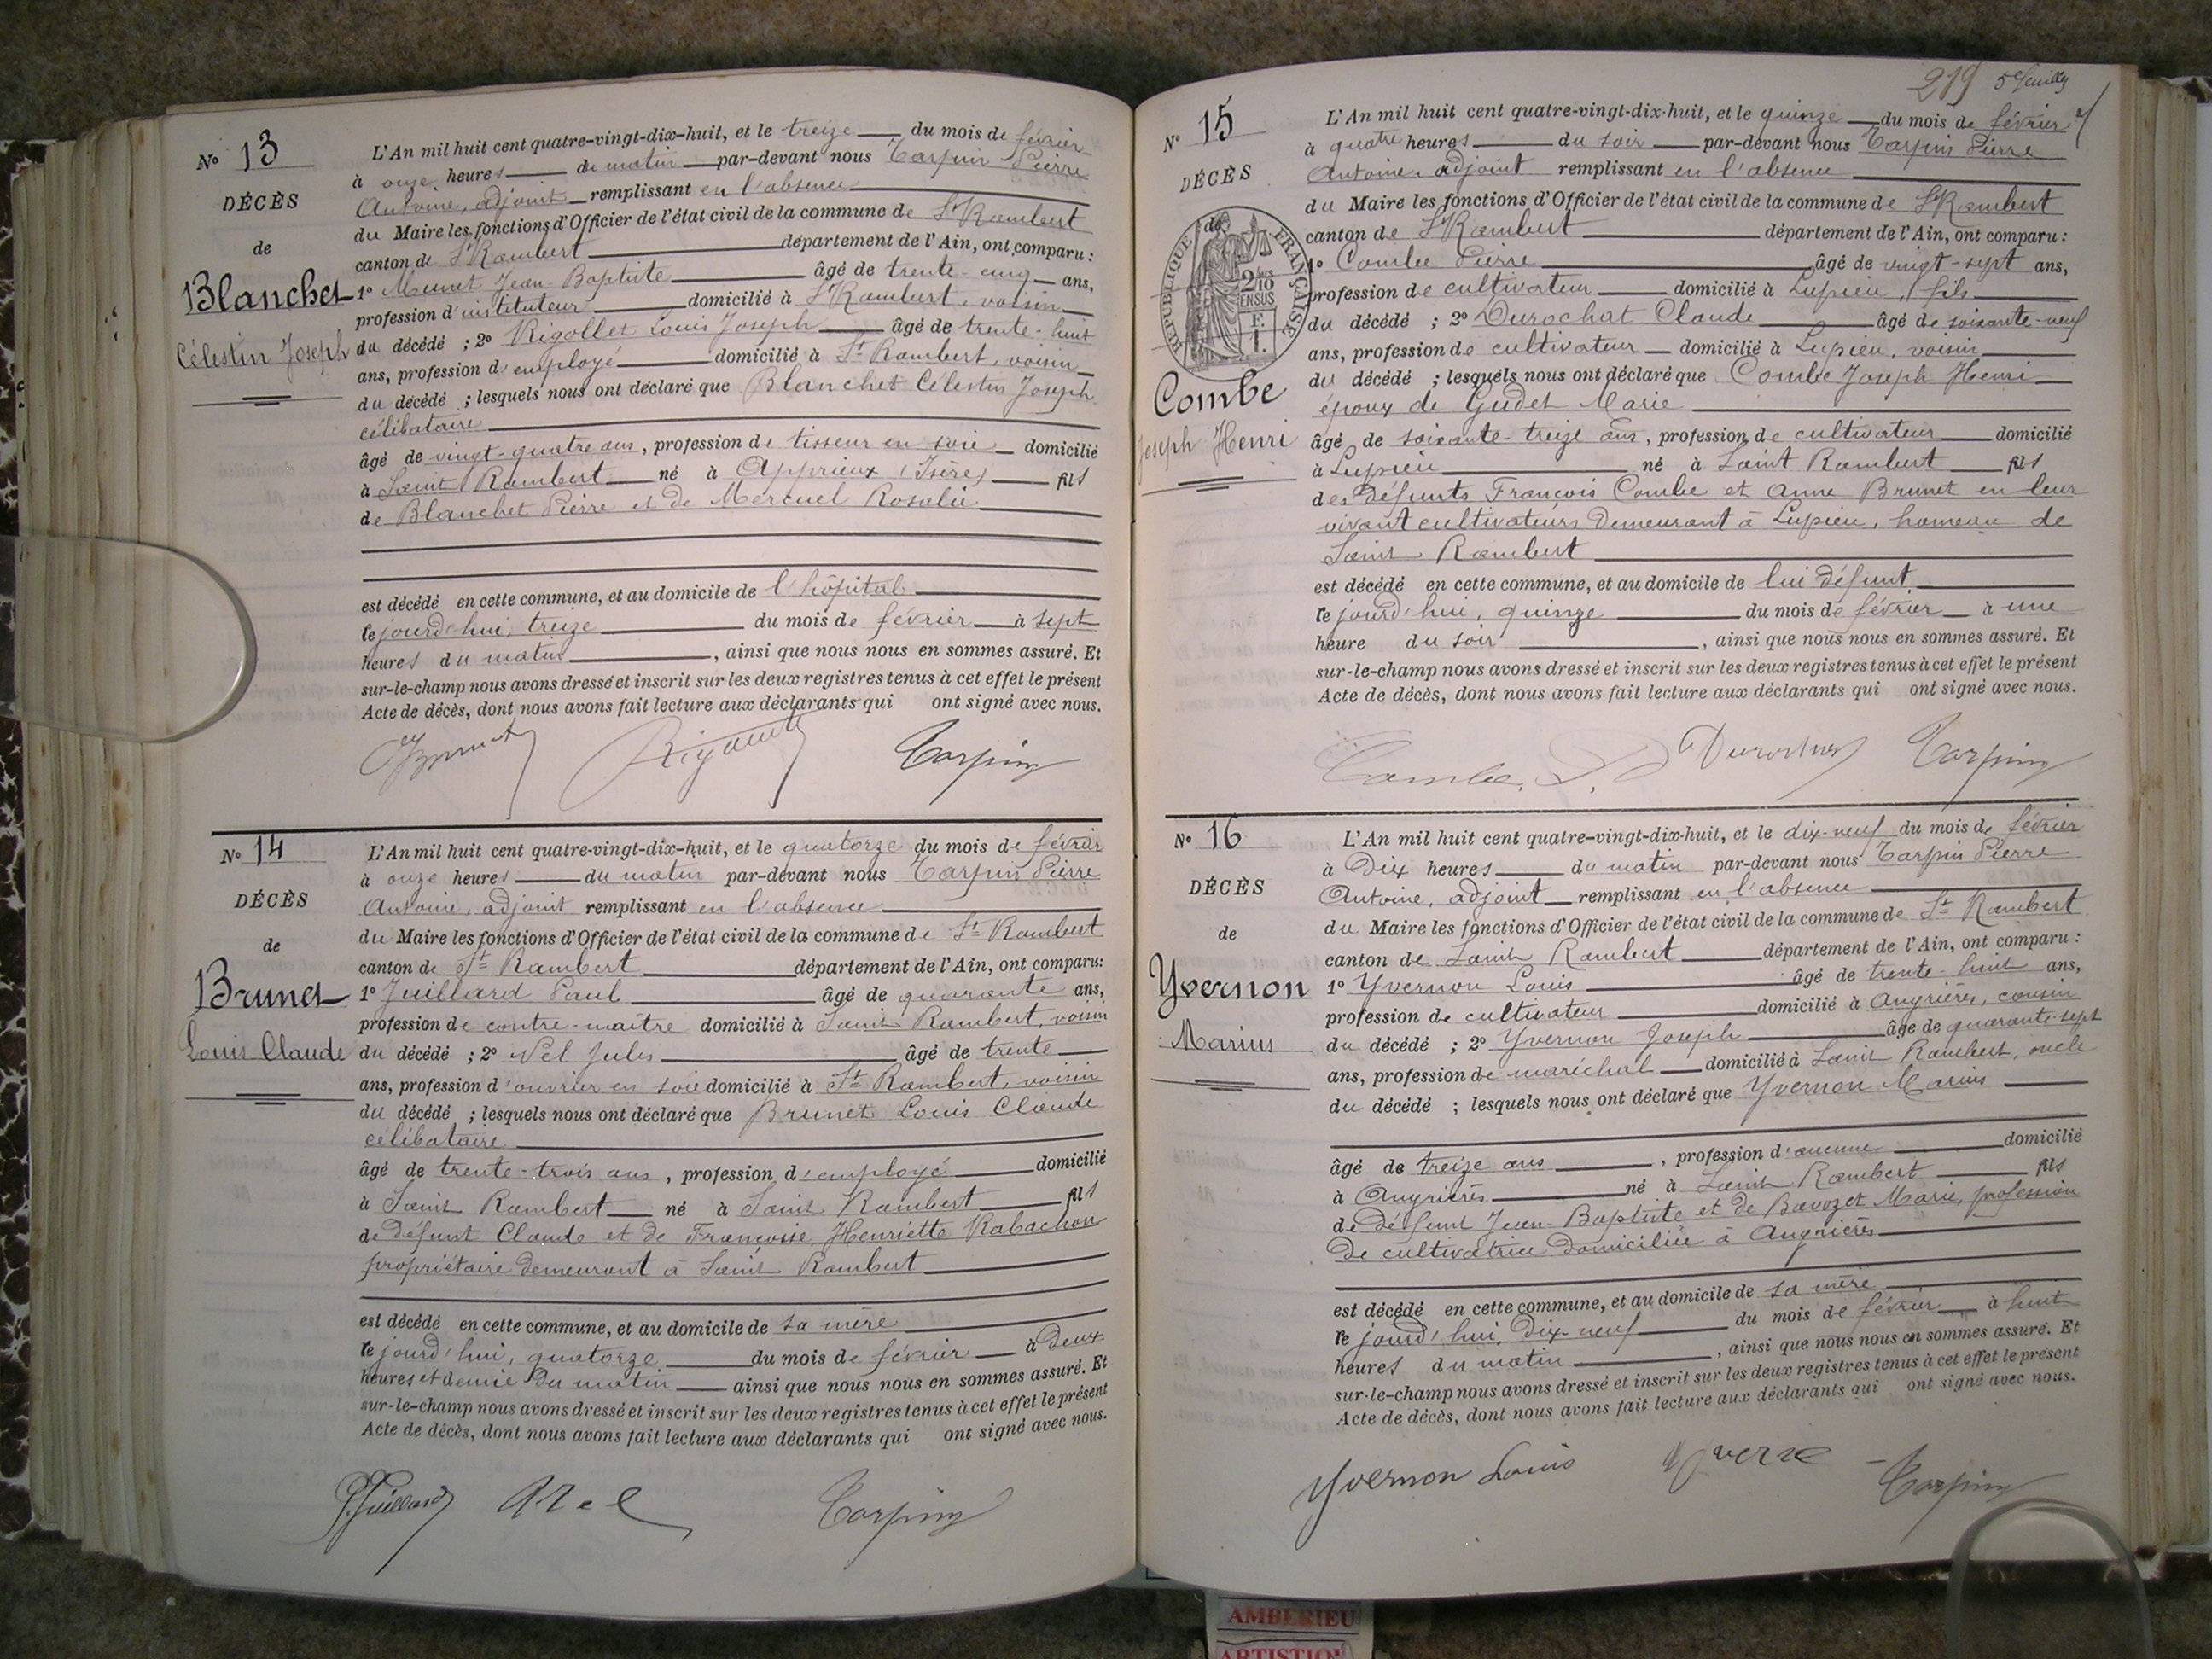 N° 13
DÉCÈS
de
Blanchet
Célestin Joseph
L'An mil huit cent quatre-vingt-dix-huit, et le treize du mois de février
à onze heures du matin par-devant nous Tarpin Pierre
Antoine, adjoint remplissant en l'absence
du Maire les fonctions d'Officier de l'état civil de la commune de St Rambert
canton de St Rambert département de l'Ain, ont comparu :
1° Jean Baptiste âgé de trente-cinq ans,
profession d'instituteur domicilié à St Rambert, voisin
du décédé ; 2° Rigollet Louis Joseph âgé de trente-huit
ans, profession d'employé domicilié à St Rambert, voisin
du décédé ; lesquels nous ont déclaré que Blanchet Célestin Joseph
célibataire
âgé de vingt-quatre ans, profession de tisseur en soie domicilié
à Saint Rambert né à Apprieux (Isère) fils
de Blanchet Pierre et de Mercuel Rosalie
est décédé en cette commune, et au domicile de l'hôpital
le jourd'hui, treize du mois de février à sept
heures du matin, ainsi que nous nous en sommes assuré. Et
sur-le-champ nous avons dressé et inscrit sur les deux registres tenus à cet effet le présent
Acte de décès, dont nous avons fait lecture aux déclarants qui ont signé avec nous.
Tarpin
N° 14
DÉCÈS
de
Brunet
Louis Claude
L'An mil huit cent quatre-vingt-dix-huit, et le quatorze du mois de février
à onze heures du matin par-devant nous Tarpin Pierre
Antoine, adjoint remplissant en l'absence
du Maire les fonctions d'Officier de l'état civil de la commune de St Rambert
canton de St Rambert département de l'Ain, ont comparu:
1° Juillard Paul âgé de quarante ans,
profession de contre-maître domicilié à Saint Rambert, voisin
du décédé ; 2° Nel Jules âgé de trente
ans, profession d'ouvrier en soie domicilié à St Rambert, voisin
du décédé ; lesquels nous ont déclaré que Brunet Louis Claude
célibataire
âgé de trente-trois ans, profession d'employé domicilié
à Saint Rambert né à Saint Rambert fils
de défunt Claude et de Françoise Henriette Rabachon
propriétaire demeurant à Saint Rambert
est décédé en cette commune, et au domicile de sa mère
le jourd'hui, quatorze du mois de février à deux
heures et demie du matin ainsi que nous nous en sommes assuré. Et
sur-le-champ nous avons dressé et inscrit sur les deux registres tenus à cet effet le présent
Acte de décès, dont nous avons fait lecture aux déclarants qui ont signé avec nous.
P. Juillard Nel Tarpin
219 5e feuillet
N° 15
DÉCÈS
de
RÉPUBLIQUE FRANÇAISE
2/10
EN SUS
F.
1.
Combe
Joseph Henri
L'An mil huit cent quatre-vingt-dix-huit, et le quinze du mois de février
à quatre heures du soir par-devant nous Tarpin Pierre
Antoine, adjoint remplissant en l'absence
du Maire les fonctions d'Officier de l'état civil de la commune de St Rambert
canton de St Rambert département de l'Ain, ont comparu :
1° Combe Pierre âgé de vingt-sept ans,
profession de cultivateur domicilié à Lupieu, fils
du décédé ; 2° Durochat Claude âgé de soixante-neuf
ans, profession de cultivateur domicilié à Lupieu, voisin
du décédé ; lesquels nous ont déclaré que Combe Joseph Henri
époux de Gudet Marie
âgé de soixante-treize ans, profession de cultivateur domicilié
à Lupieu né à Saint Rambert fils
des défunts François Combe et Anne Brunet en leur
vivant cultivateurs demeurant à Lupieu, hameau de
Saint Rambert
est décédé en cette commune, et au domicile de lui défunt
le jourd'hui, quinze du mois de février à une
heure du soir, ainsi que nous nous en sommes assuré. Et
sur-le-champ nous avons dressé et inscrit sur les deux registres tenus à cet effet le présent
Acte de décès, dont nous avons fait lecture aux déclarants qui ont signé avec nous.
Combe Tarpin
N° 16
DÉCÈS
de
Yvernon
Marius
L'An mil huit cent quatre-vingt-dix-huit, et le dix-neuf du mois de février
à dix heures du matin par-devant nous Tarpin Pierre
Antoine, adjoint remplissant en l'absence
du Maire les fonctions d'Officier de l'état civil de la commune de St Rambert
canton de Saint Rambert département de l'Ain, ont comparu :
1° Yvernon Louis âgé de trente-huit ans,
profession de cultivateur domicilié à Angrières, cousin
du décédé ; 2° Yvernon Joseph âgé de quarante-sept
ans, profession de maréchal domicilié à Saint Rambert, oncle
du décédé ; lesquels nous ont déclaré que Yvernon Marius
âgé de treize ans, profession d'aucune domicilié
à Angrières né à Saint Rambert fils
de défunt Jean-Baptiste et de Bavozet Marie, profession
de cultivatrice domiciliée à Angrières
est décédé en cette commune, et au domicile de sa mère
le jourd'hui, dix-neuf du mois de février à huit
heures du matin, ainsi que nous nous en sommes assuré. Et
sur-le-champ nous avons dressé et inscrit sur les deux registres tenus à cet effet le présent
Acte de décès, dont nous avons fait lecture aux déclarants qui ont signé avec nous.
Yvernon Louis Tarpin
AMBERIEU